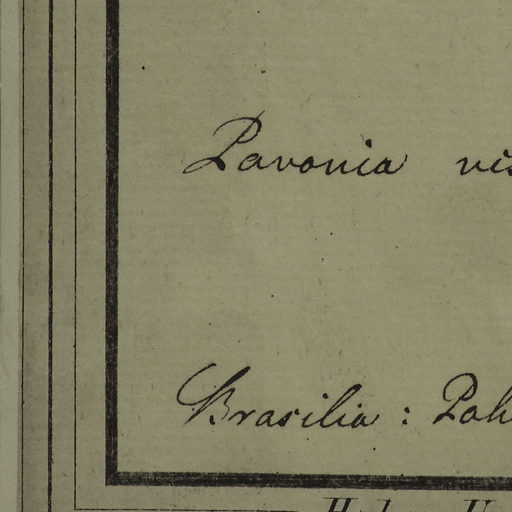 Pavonia vis
Brasilia : Poh